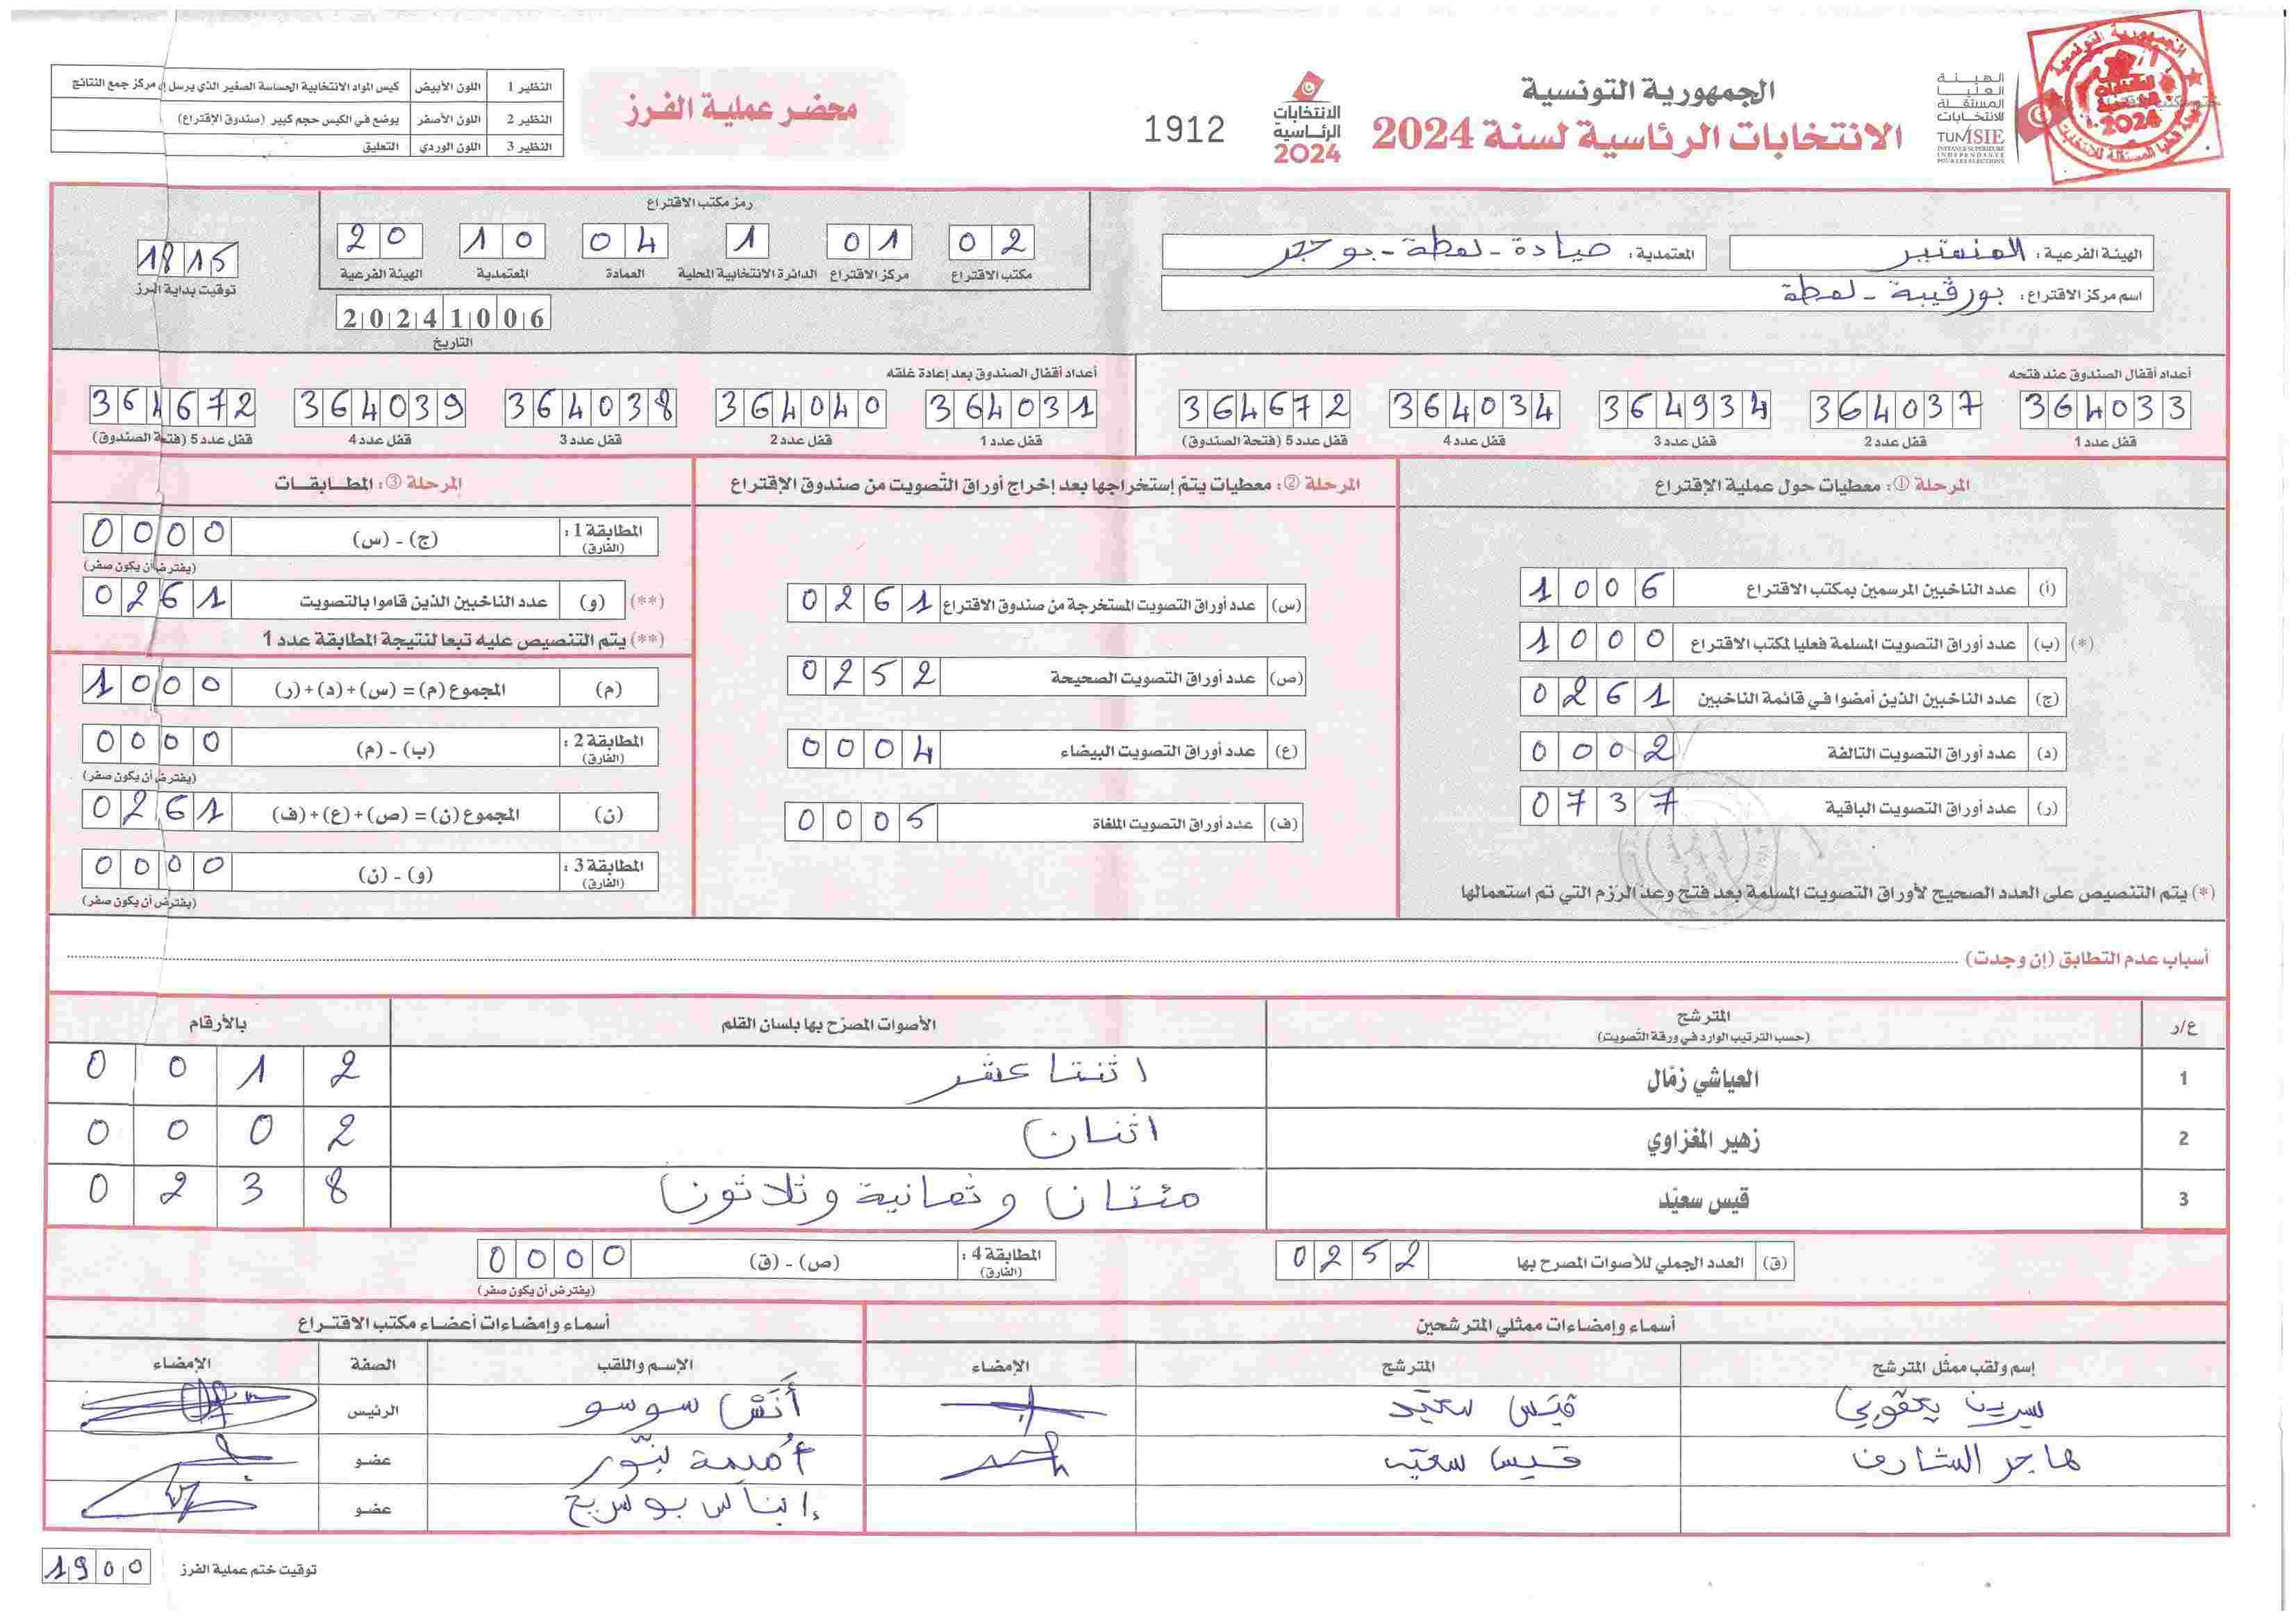 الجمهورية التونسية
الانتخابات الرئاسية لسنة 2024
الهيئة العليا المستقلة للانتخابات
TUNISIE
INSTANCE SUPERIEURE INDEPENDANTE POUR LES ELECTIONS
الانتخابات الرئاسية 2024
1912
محضر عملية الفرز
النظير 1 اللون الأبيض كيس المواد الانتخابية الحساسة الصغير الذي يرسل إلى مركز جمع النتائج
النظير 2 اللون الأصفر يوضع في الكيس حجم كبير (صندوق الإقتراع)
النظير 3 اللون الوردي التعليق
الهيئة الفرعية: المنستير المعتمدية: صيادة - لمطة - بوحجر
اسم مركز الاقتراع: بورقيبة - لمطة
رمز مكتب الاقتراع
02 مكتب الاقتراع
01 مركز الاقتراع
1 الدائرة الانتخابية المحلية
04 العمادة
10 المعتمدية
20 الهيئة الفرعية
20241006
التاريخ
1815
توقيت بداية الفرز
أعداد أقفال الصندوق عند فتحه
364033 قفل عدد 1
364037 قفل عدد 2
364934 قفل عدد 3
364034 قفل عدد 4
364672 قفل عدد 5 (فتحة الصندوق)
أعداد أقفال الصندوق بعد إعادة غلقه
364031 قفل عدد 1
364040 قفل عدد 2
364038 قفل عدد 3
364039 قفل عدد 4
364672 قفل عدد 5 (فتحة الصندوق)
المرحلة ①: معطيات حول عملية الإقتراع
(أ) عدد الناخبين المرسمين بمكتب الاقتراع 1006
(*) (ب) عدد أوراق التصويت المسلمة فعليا لمكتب الاقتراع 1000
(ج) عدد الناخبين الذين أمضوا في قائمة الناخبين 0261
(د) عدد أوراق التصويت التالفة 0002
(ر) عدد أوراق التصويت الباقية 0737
(*) يتم التنصيص على العدد الصحيح لأوراق التصويت المسلمة بعد فتح وعد الرزم التي تم استعمالها
المرحلة ②: معطيات يتم إستخراجها بعد إخراج أوراق التصويت من صندوق الإقتراع
(س) عدد أوراق التصويت المستخرجة من صندوق الاقتراع 0261
(ص) عدد أوراق التصويت الصحيحة 0252
(ع) عدد أوراق التصويت البيضاء 0004
(ف) عدد أوراق التصويت الملغاة 0005
المرحلة ③: المطابقات
المطابقة 1: (الفارق) (ج) - (س) 0000
(يفترض أن يكون صفر)
(**) (و) عدد الناخبين الذين قاموا بالتصويت 0261
(**) يتم التنصيص عليه تبعا لنتيجة المطابقة عدد 1
(م) المجموع (م) = (س) + (د) + (ر) 1000
المطابقة 2: (الفارق) (ب) - (م) 0000
(يفترض أن يكون صفر)
(ن) المجموع (ن) = (ص) + (ع) + (ف) 0261
المطابقة 3: (الفارق) (و) - (ن) 0000
(يفترض أن يكون صفر)
أسباب عدم التطابق (إن وجدت)
ع/ر المترشح (حسب الترتيب الوارد في ورقة التصويت) الأصوات المصرّح بها بلسان القلم بالأرقام
1 العياشي زمّال اثنتا عشر 0012
2 زهير المغزاوي اثنان 0002
3 قيس سعيّد مئتان وثمانية وثلاثون 0238
(ق) العدد الجملي للأصوات المصرح بها 0252
المطابقة 4: (الفارق) (ص) - (ق) 0000
(يفترض أن يكون صفر)
أسماء وإمضاءات ممثلي المترشحين
إسم ولقب ممثّل المترشح المترشح الإمضاء
سيرين يعقوبي قيس سعيّد
هاجر الشارف قيس سعيّد
أسماء وإمضاءات أعضاء مكتب الاقتراع
الإسم واللقب الصفة الإمضاء
أنس سوسو الرئيس
أميمة بنّور عضو
إيناس بوسريح عضو
توقيت ختم عملية الفرز 1900